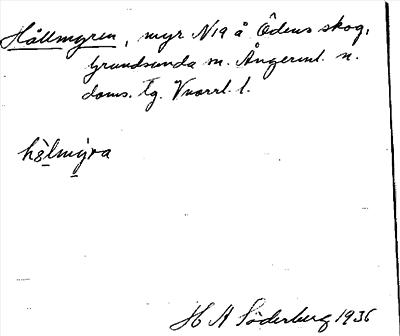 Hållmyren, myr N19 å Ödens skog,
Grundsunda sn. Ångerml. n.
doms. tg. Vnorrl. l.
hòlmýra
H A Söderberg 1936